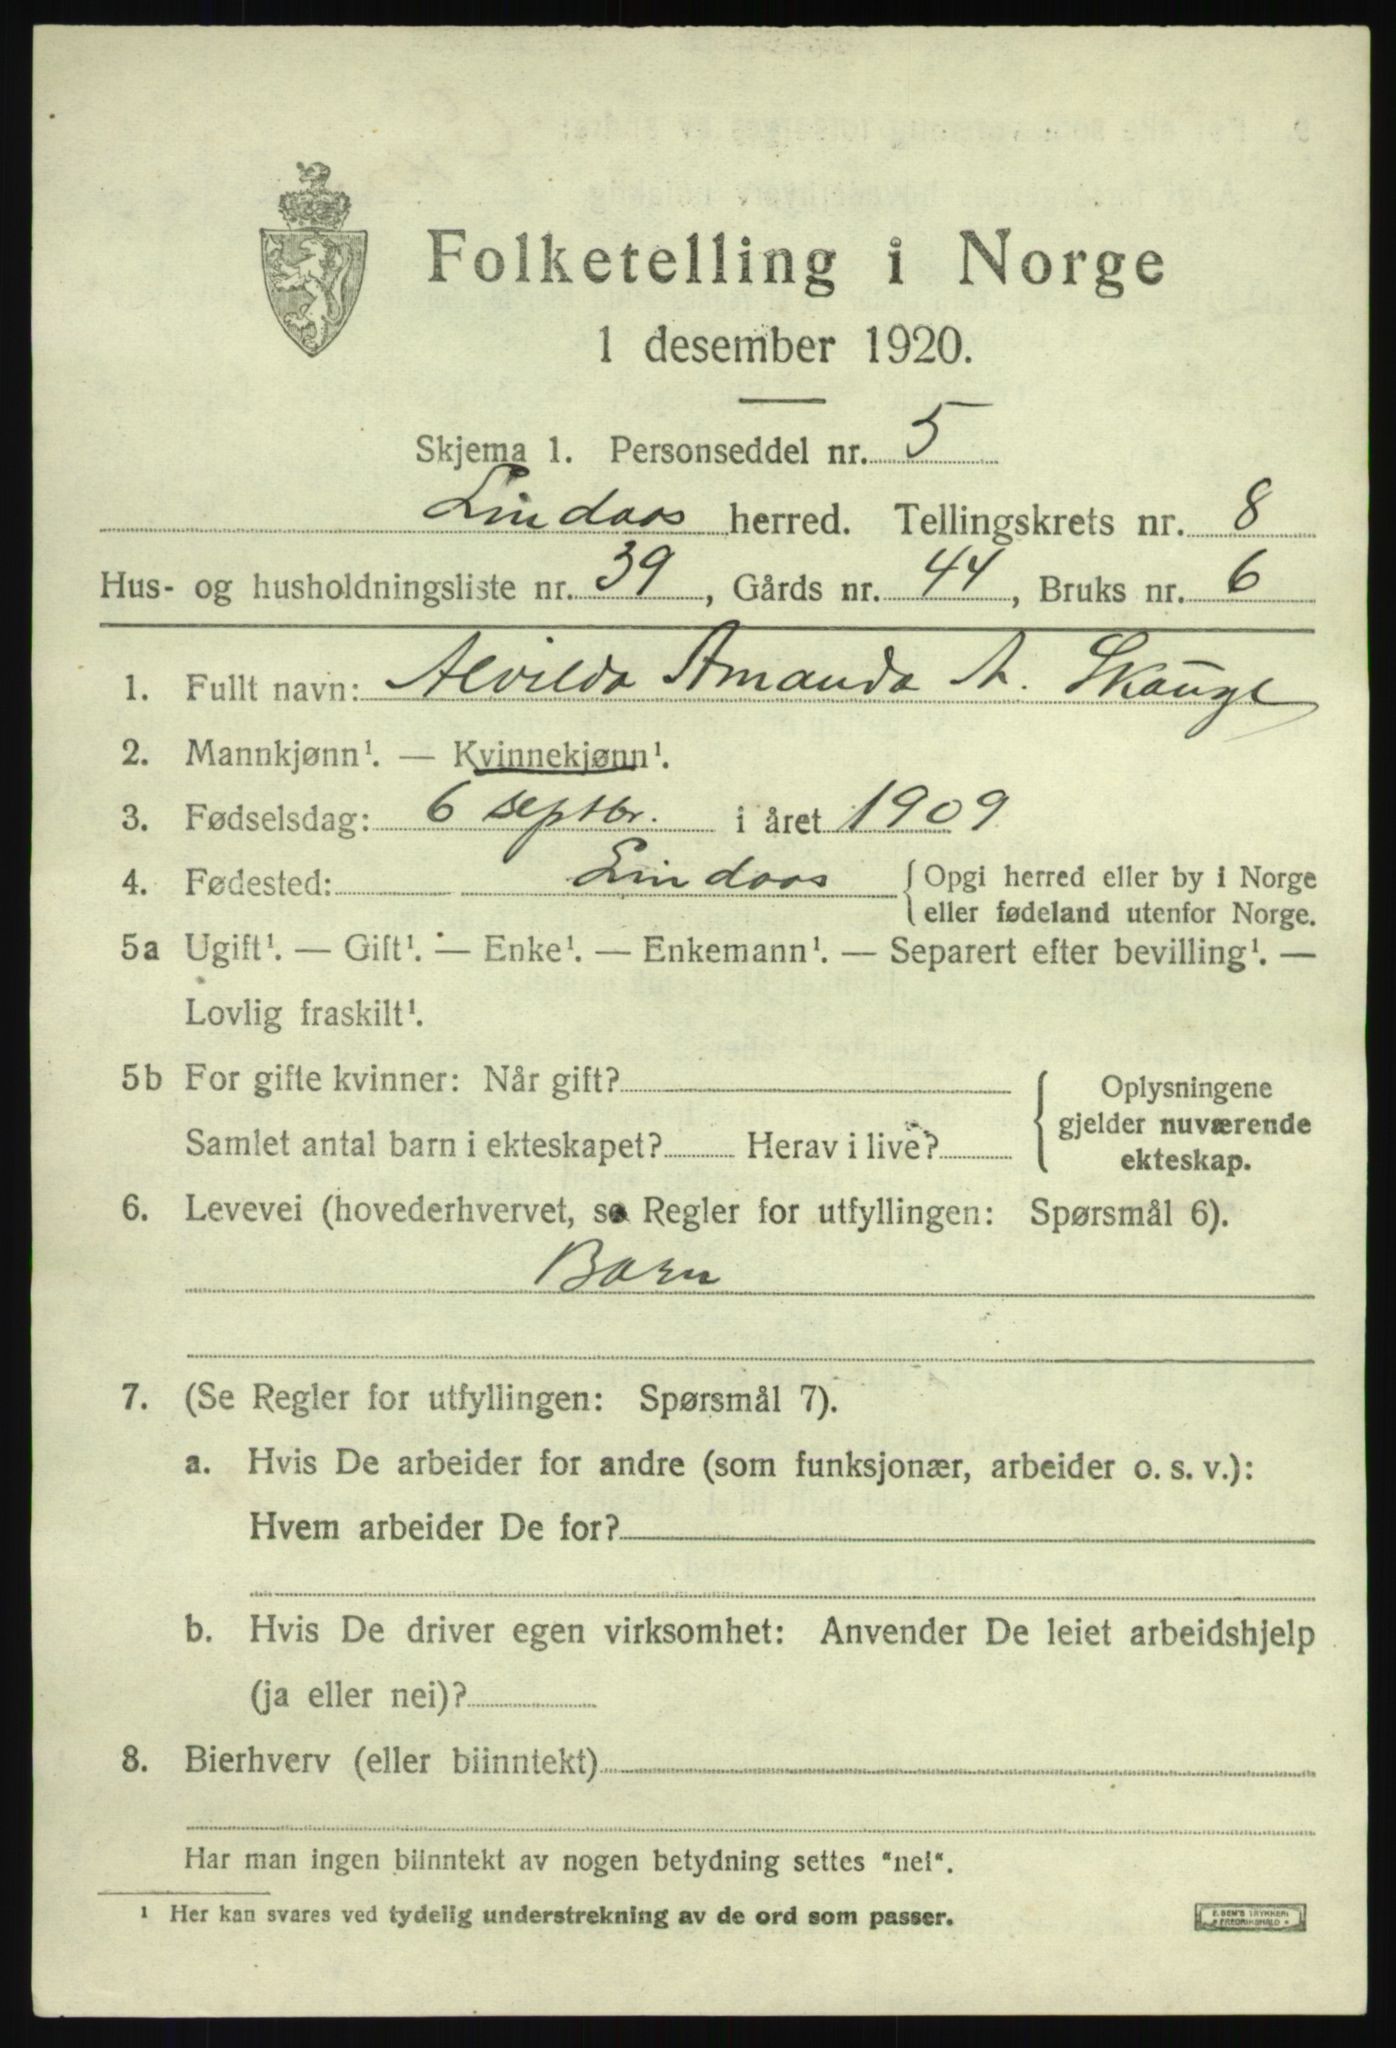 Folketelling i Norge
1 desember 1920.
Skjema 1. Personseddel nr. 5
Lindaas herred. Tellingskrets nr. 8
Hus- og husholdningsliste nr. 39, Gårds nr. 44, Bruks nr. 6
1. Fullt navn: Alvilda Amanda A. Skauge
2. Mannkjønn¹. — Kvinnekjønn¹.
3. Fødselsdag: 6 septbr. i året 1909
4. Fødested: Lindaas { Opgi herred eller by i Norge
eller fødeland utenfor Norge.
5a Ugift¹. — Gift¹. — Enke¹. — Enkemann¹. — Separert efter bevilling¹. —
Lovlig fraskilt¹.
5b For gifte kvinner: Når gift?
Samlet antal barn i ekteskapet? Herav i live?
{ Oplysningene
gjelder nuværende
ekteskap.
6. Levevei (hovederhvervet, se Regler for utfyllingen: Spørsmål 6).
Barn
7. (Se Regler for utfyllingen: Spørsmål 7).
a. Hvis De arbeider for andre (som funksjonær, arbeider o. s. v.):
Hvem arbeider De for?
b. Hvis De driver egen virksomhet: Anvender De leiet arbeidshjelp
(ja eller nei)?
8. Bierhverv (eller biinntekt)
Har man ingen biinntekt av nogen betydning settes "nei".
¹ Her kan svares ved tydelig understrekning av de ord som passer.
E. SEM'S TRYKKERI
FREDRIKSHALD